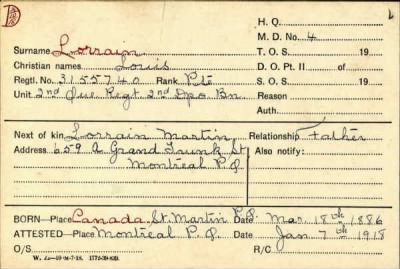 D
H. Q.
M. D. No. 4
Surname Lorrain T. O. S. 19
Christian names Louis D. O. Pt. II of
Regtl. No. 3155740 Rank Pte S. O. S. 19
Unit 2nd Que Regt 2nd Dpo Bn. Reason
Auth.
Next of kin Lorrain Martin Relationship Father
Address 659 A Grand Trunk St Also notify:
Montreal P.Q
BORN—Place Canada, St. Martin P.Q. Date Mar. 18th 1886
ATTESTED—Place Montreal P. Q. Date Jan 7th 1918
O/S R/C